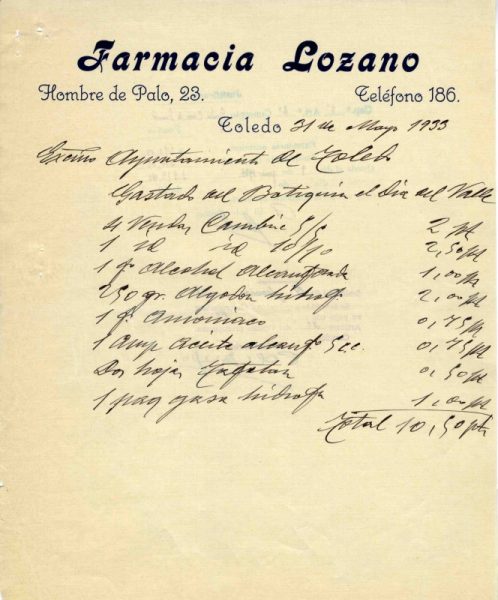 Farmacia Lozano
Hombre de Palo, 23. Teléfono 186.
Toledo 31 de Mayo 1933
Excmo Ayuntamiento de Toledo
Gastado del Botiquin el Dia del Valle
4 Vendas Cambric 5/5 2 pt
1 id id 10/10 2,50 pt
1 f. Alcohol Alcanforado 1,00 pt
250 gr. Algodon hidrof. 2,00 pt
1 f. Amoniaco 0,75 pt
1 Amp Aceite alcanf 5 cc. 0,75 pt
Dos hojas Tafetan 0,50 pt
1 paq gasa hidrofa 1,00 pt
Total 10,50 pts